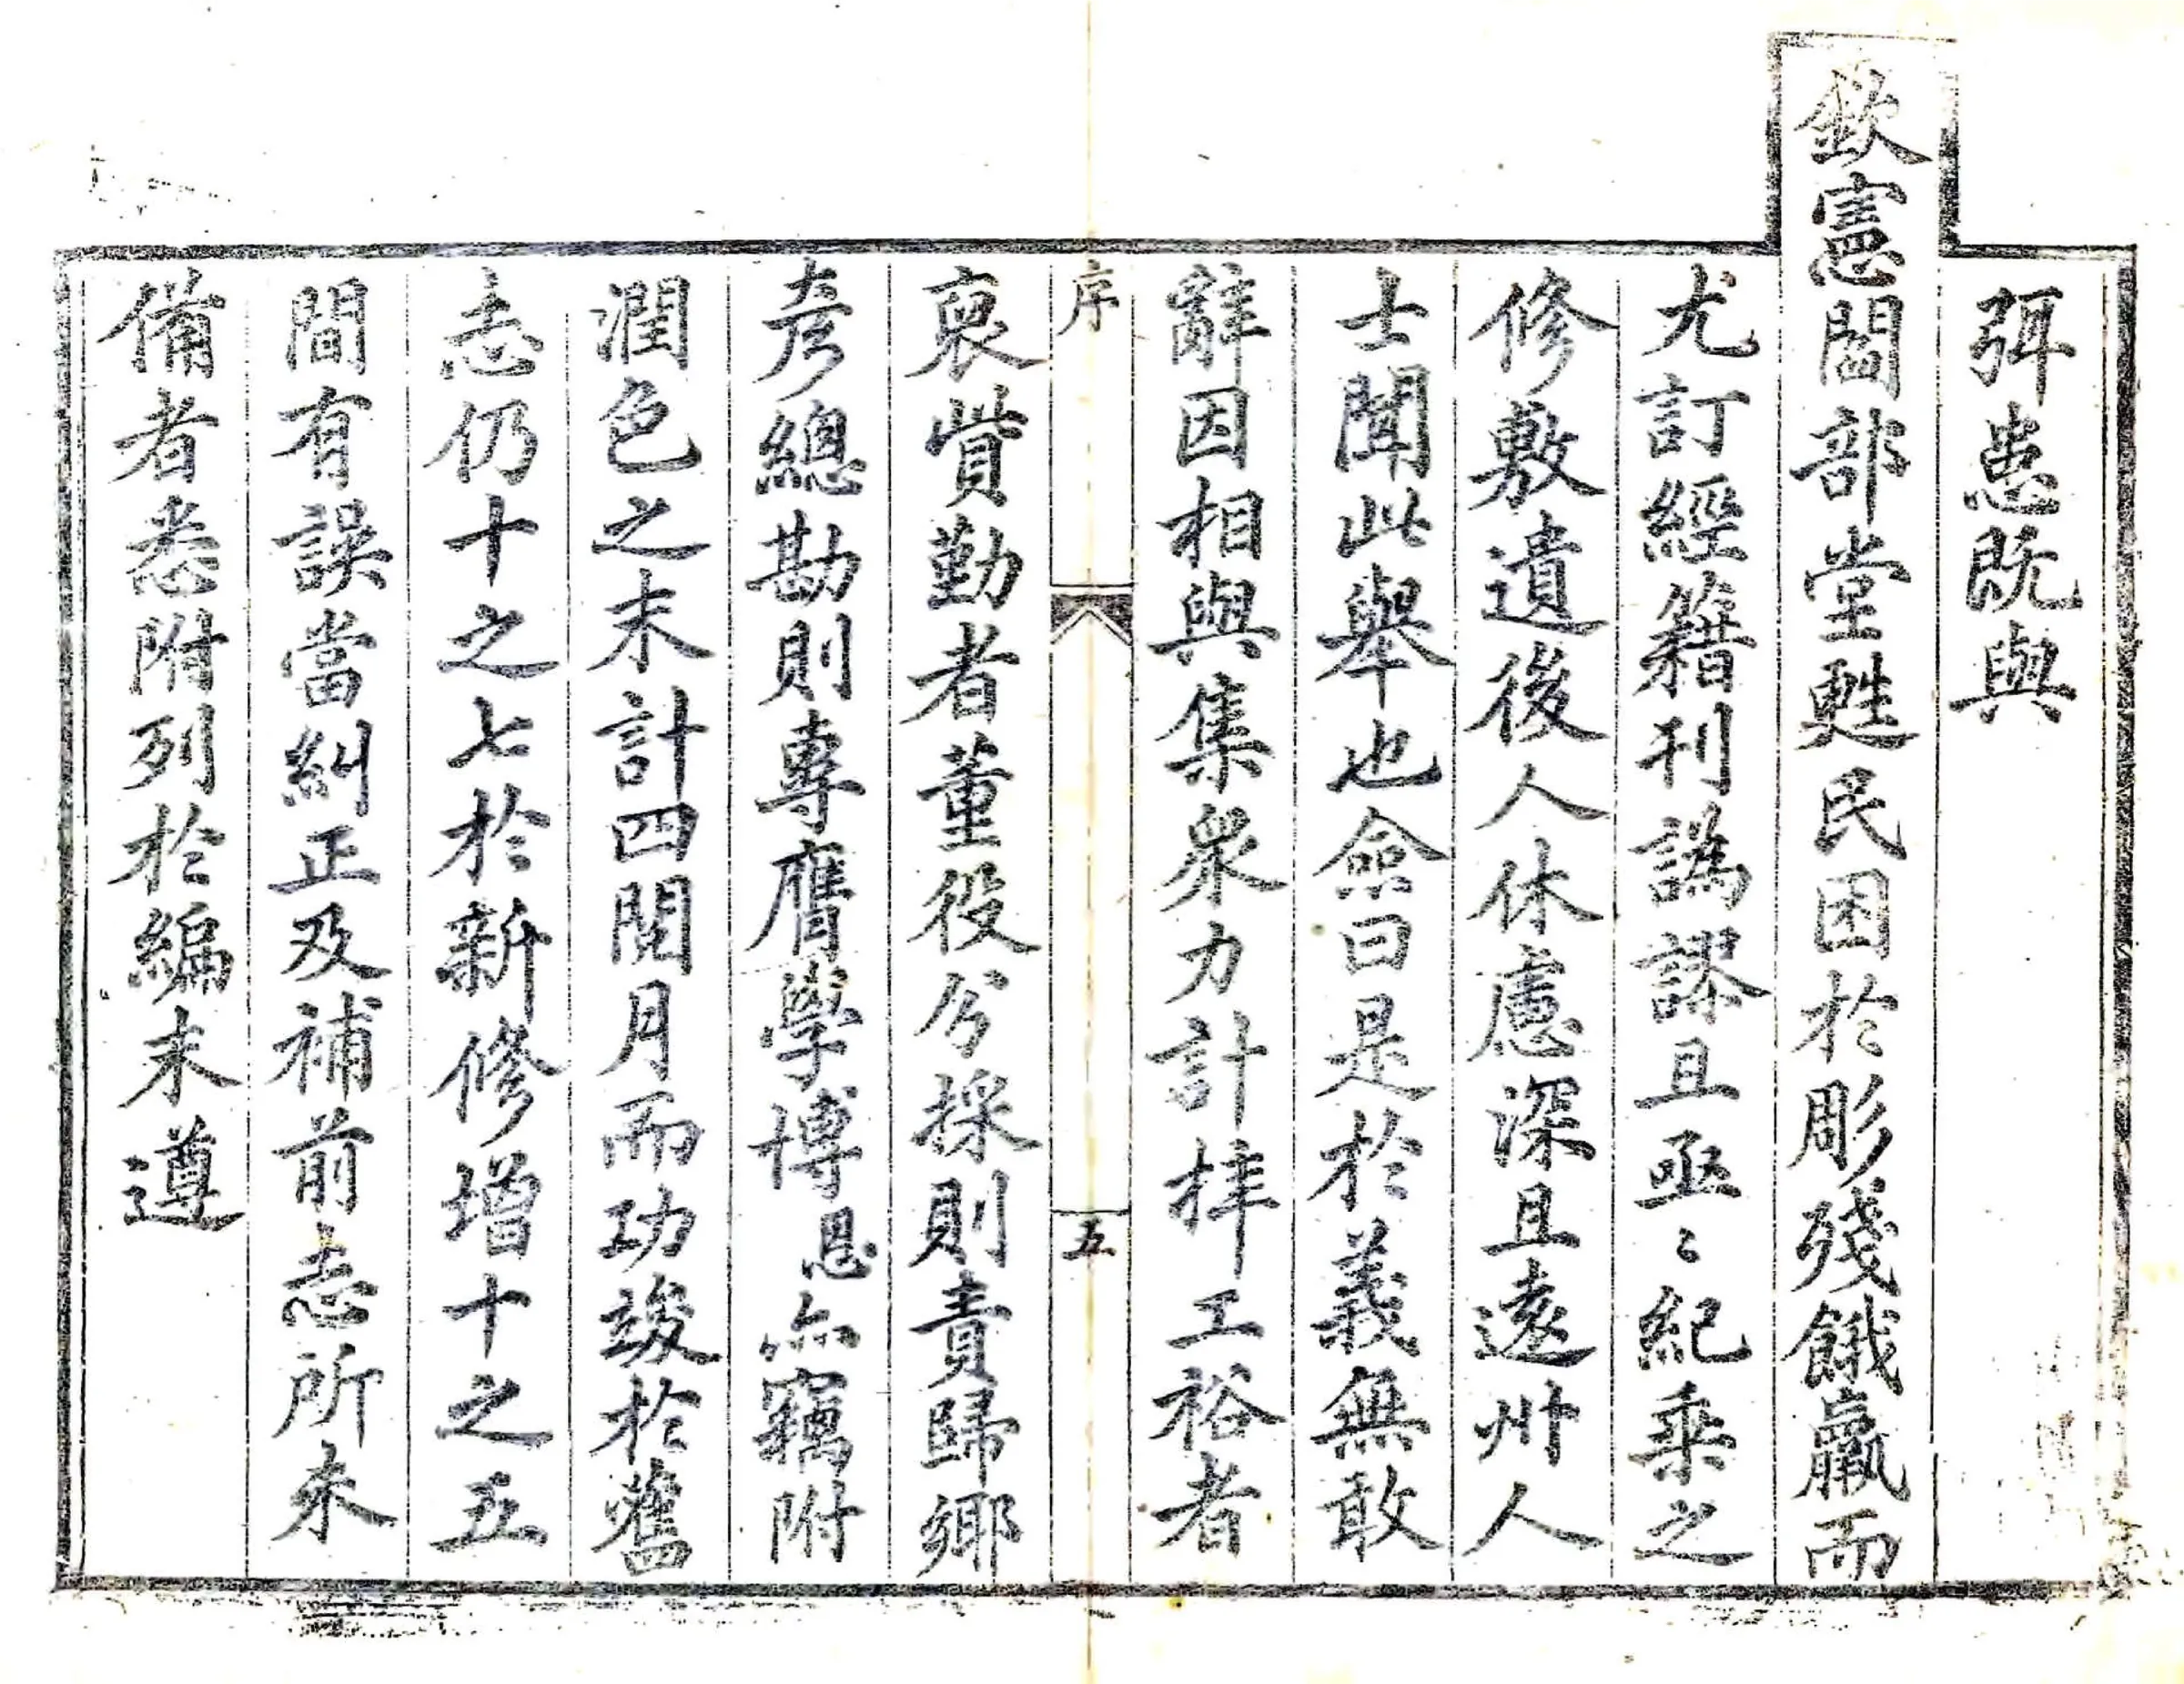 弭患既與
欽憲閻部堂甦民困於彫殘餓羸而
尤訂經籍刊譌謬且亟〻紀乘之
修敷遺後人休慮深且遠州人
士聞此舉也僉曰是於義無敢
辭因相與集衆力計梓工裕者
裒貲勤者董役分採則責歸鄉
彥總勘則專膺學博恩亦竊附
潤色之末計四閱月而功竣於舊
志仍十之七於新修增十之五
間有誤當糾正及補前志所未
備者悉附列於編末遵
序
五